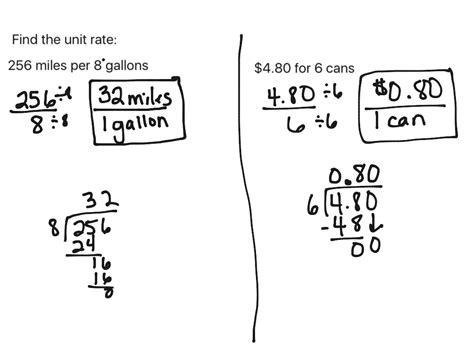 Find the unit rate:
256 miles per 8 gallons
256 ÷8
8 ÷8
32 miles
1 gallon
32
8 256
24
16
16
0
$4.80 for 6 cans
4.80 ÷6
6 ÷6
$0.80
1 can
0.80
6 4.80
-48↓
00